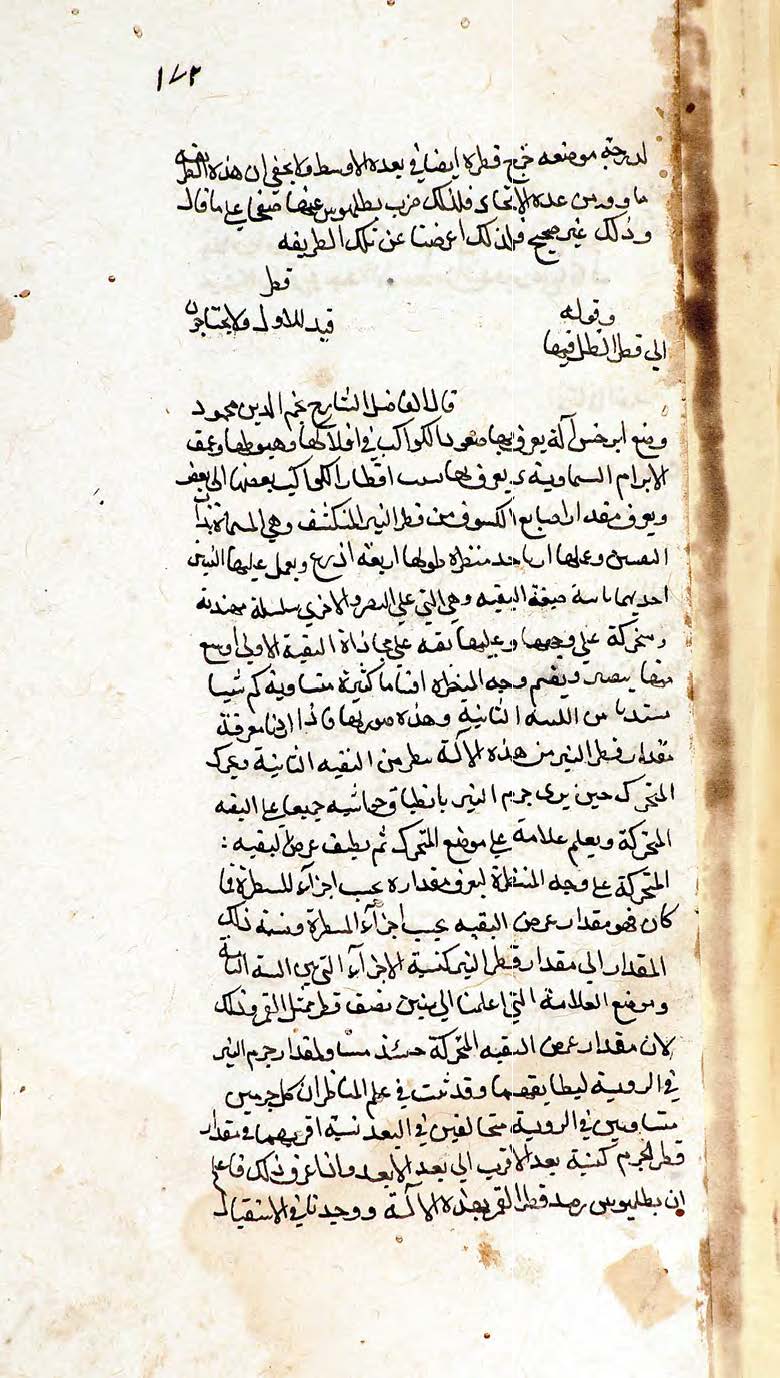 ١٧٢
لدرجة موضعه خرج قطره ايضا في بعده الاوسط ولا يخفى ان هذه الطريقه
ما وردين عدة الابحاء فلذلك ضرب بطلميوس عنها صفحا على ما قال
وذلك غير صحيح ولذلك اعرضنا عن تلك الطريقه
قطر
وقوله قيد للاول ولا يحتاجون
الى قطر الظل فيها
قال الفاضل الشارح نجم الدين محمود
وضع ابرخس آلة يعرف بها صعود الكواكب في افلاكها وهبوطها وعمق
الاجرام السماوية و يعرف بها نسب اقطار الكواكب بعضها الى بعض
ويعرف مقدار اصابع الكسوف من قطر النير المنكسف وهي المسماة بذات
الثقبتين وعملها ان ياخذ منظرة طولها اربعة اذرع ويعمل عليها لبنتين
احديهما ثابتة ضيقة الثقبه وهي التي على البصر والاخرى سلسلة مهندمة
ومتحركة على وجهها وعليها ثقبه على محاذاة الثقبة الاولى اوسع
منها ويقسم وجه المنظرة اقساما كثيرة متساوية كم شيئا
مبتديا من اللبنة الثانية وهذه صورتها فاذا اردنا معرفة
مقدار قطر النير من هذه الآلة ننظر من الثقبه الثانية ونحرك
المتحرك حين يرى جرم النير بانطباق حاشيه جميعا على الثقبه
المتحركة ويعلم علامة على موضع المتحرك ثم يطبق عرض الثقبه :
المتحركة على وجه المنظرة ليعرف مقداره بحسب اجزآء المسطرة فما
كان فهو مقدار عرض الثقبه بحسب اجزآء المسطرة ونسبة ذلك
المقدار الى مقدار قطر النير كنسبة الاجزآء التي بين اللبنة الثابتة
وموضع العلامة التي اعلمنا الى ستين نصف قطر ممثل القمر وذلك
لان مقدار عرض الثقبه المتحركة حينئذ مساو لمقدار جرم النير
في الروية ليطابقهما وقد ثبت في علم المناظر ان كل جرمين
متساويين في الروية متخالفين في البعد نسبة اقربهما في مقدار
قطر الجرم كنسبة بعد الاقرب الى بعد الابعد واذا عرف ذلك فاعلم
ان بطلميوس رصد قطر القمر بهذه الآلة ووجد ثاني الاستقبال